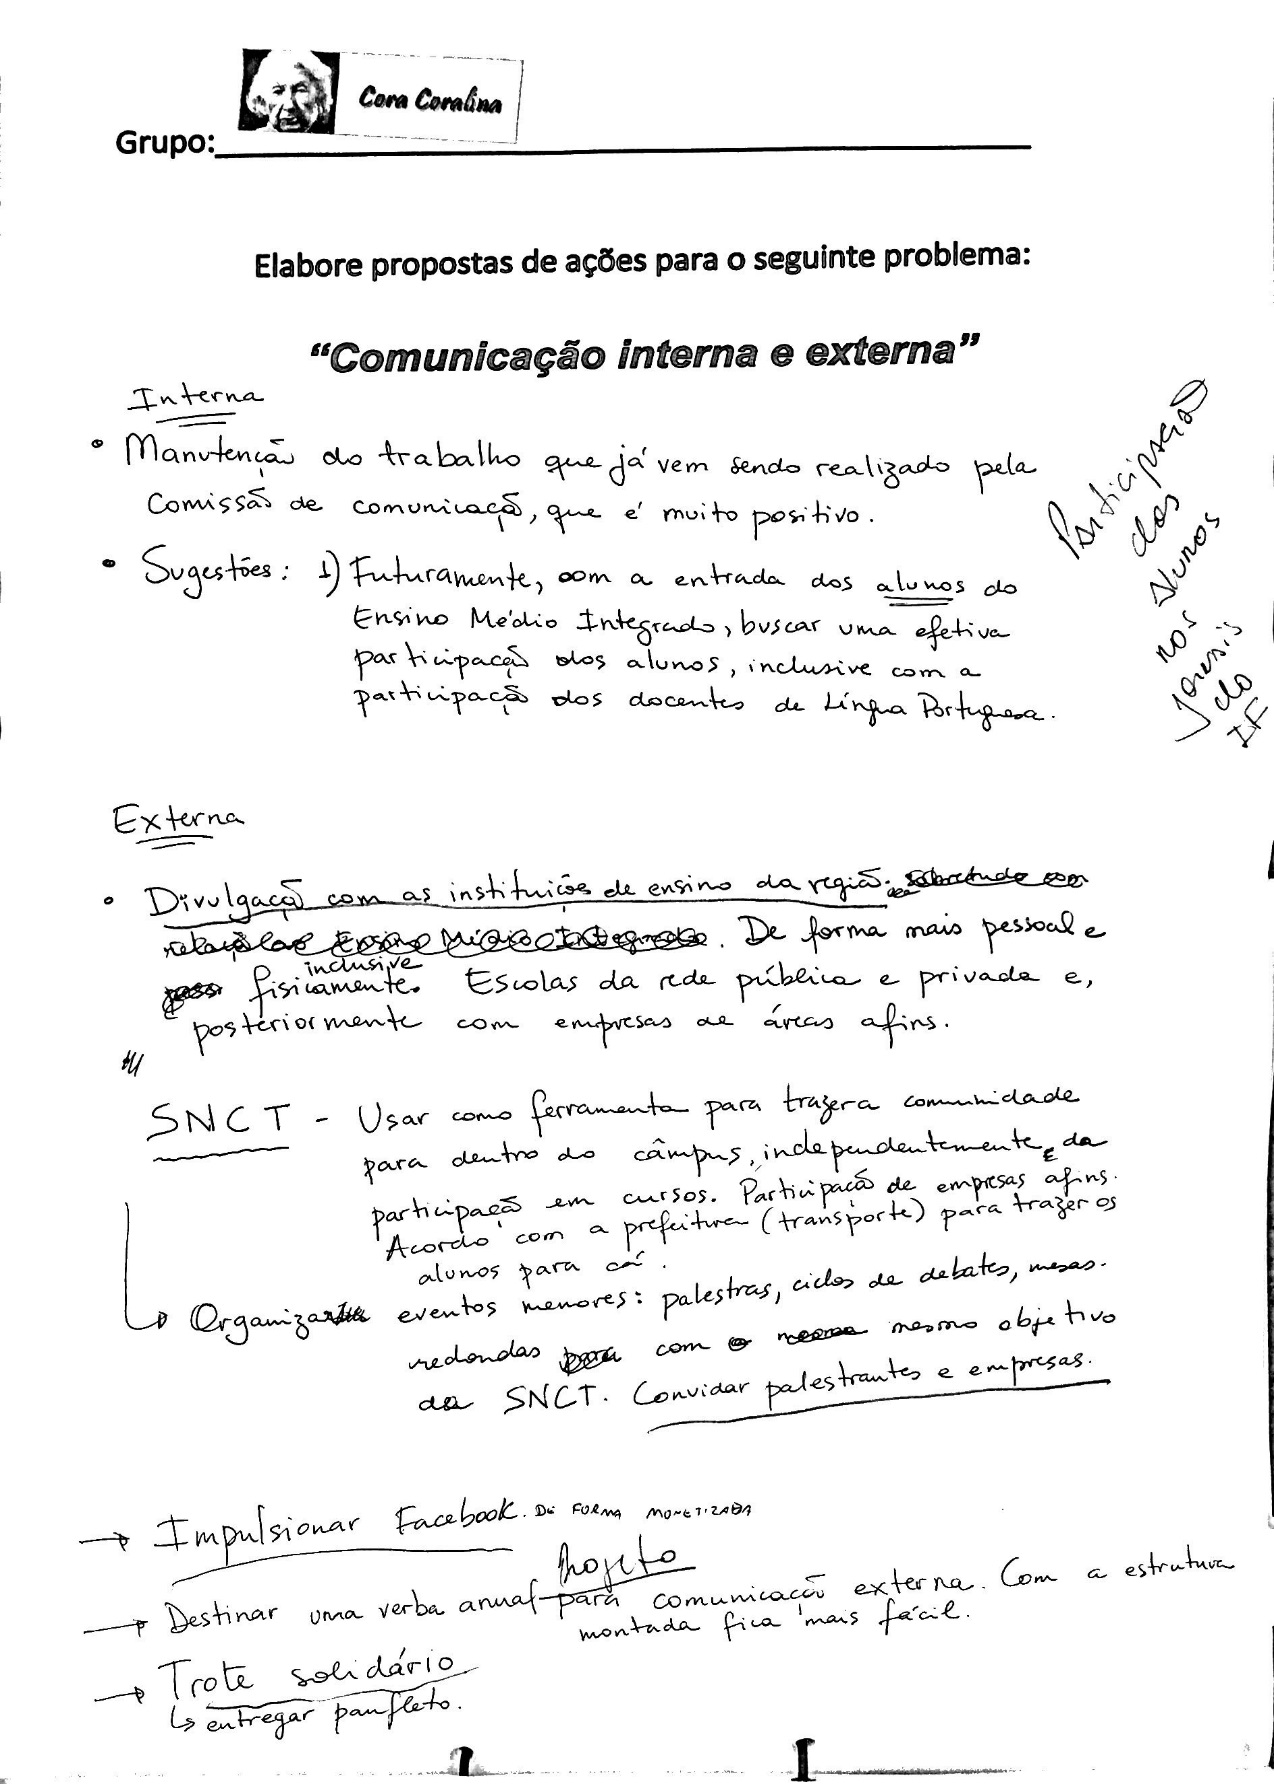 Cora Coralina
Grupo:
Elabore propostas de ações para o seguinte problema:
“Comunicação interna e externa”
Interna
• Manutenção do trabalho que já vem sendo realizado pela
Comissão de comunicação, que é muito positivo.
• Sugestões: 1) Futuramente, com a entrada dos alunos do
Ensino Médio Integrado, buscar uma efetiva
participação dos alunos, inclusive com a
participação dos docentes de Língua Portuguesa.
Participação
dos
alunos
nos
jornais
do
IF
Externa
• Divulgação com as instituições de ensino da região. sobretudo com
relação ao Ensino Médio Integrado. De forma mais pessoal e
inclusive
fisicamente. Escolas da rede pública e privada e,
posteriormente com empresas de áreas afins.
SNCT - Usar como ferramenta para trazer a comunidade
para dentro do câmpus, independentemente da
participação em cursos. Participação de empresas afins.
Acordo com a prefeitura (transporte) para trazer os
alunos para cá.
↳ Organizar eventos menores: palestras, ciclos de debates, mesas-
redondas para com o mesmo mesmo objetivo
da SNCT. Convidar palestrantes e empresas.
→ Impulsionar Facebook. DE FORMA MONETIZADA
Projeto
→ Destinar uma verba anual para comunicação externa. Com a estrutura
montada fica mais fácil.
→ Trote solidário
↳ entregar panfleto.